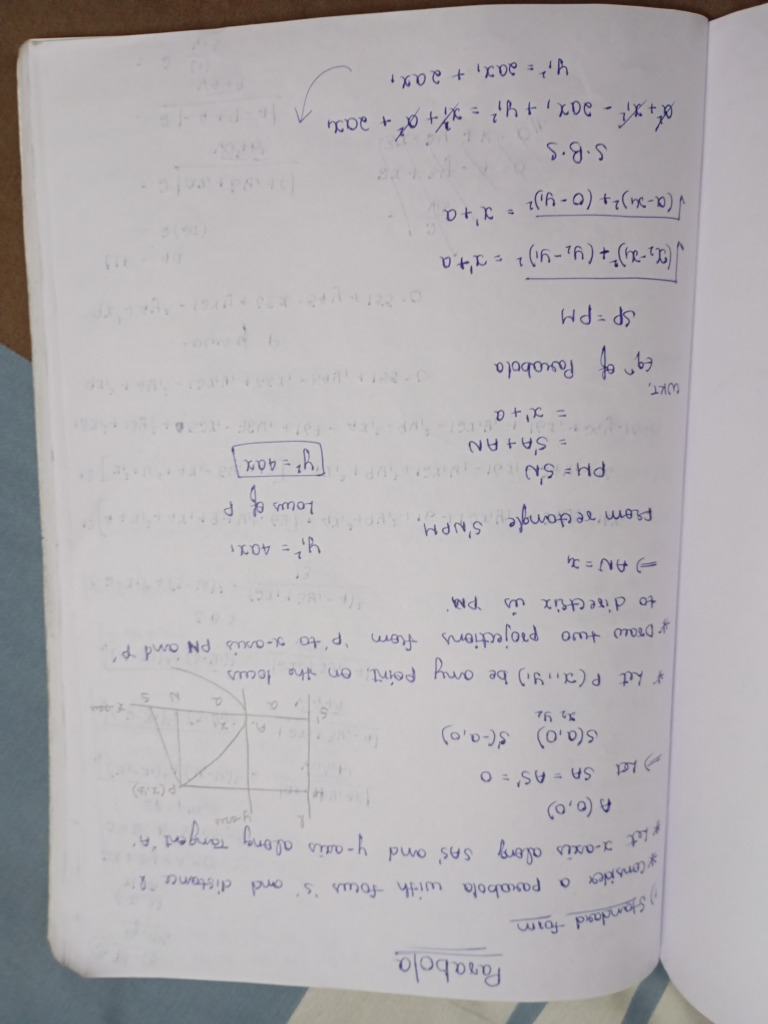 Parabola
1) Standard form
* consider a parabola with focus 's' and distance l
* Let x-axis along SAS' and y-axis along tangent 'A'
A (0,0)
=) Let SA = AS' = 0
S(a,0) S'(-a,0)
x2 y2
* Let P(x1,y1) be any point on the locus
* Draw two projections from 'p' to x-axis PN and 'p'
to directrix is 'PM'
=) AN = x1
From rectangle S'NPM
PM = S'N
= S'A + AN
= x1 + a
WKT,
Eqn of Parabola
SP = PM
√(x2-x1)² + (y2-y1)² = x1+a
√(a-x1)² + (0-y1)² = x1+a
S.B.S
a²+x1² - 2ax1 + y1² = x1² + a² + 2ax1
y1² = 2ax1 + 2ax1
y1² = 4ax1
Locus of P
y² = 4ax
l
y-axis
M
P(x1,y1)
S'
a
A
a
N
S
x-axis